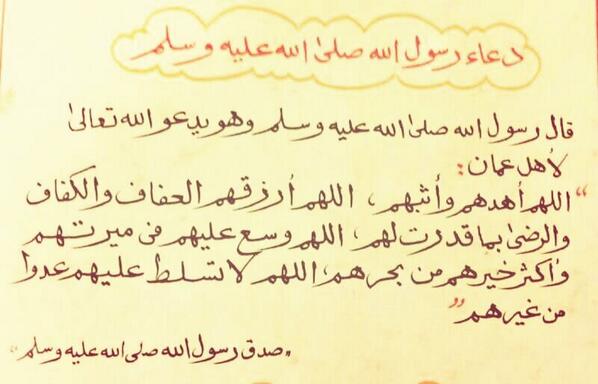 دعاء رسول الله صلى الله عليه وسلم
قال رسول الله صلى الله عليه وسلم وهو يدعو الله تعالى
لأهل عمان :
"اللهم أهدهم وأثبهم ، اللهم أرزقهم العفاف والكفاف
والرضى بما قدرت لهم ، اللهم وسع عليهم في ميرتهم
وأكثر خيرهم من بحرهم ، اللهم لا تسلط عليهم عدوا
من غيرهم"
"صدق رسول الله صلى الله عليه وسلم"